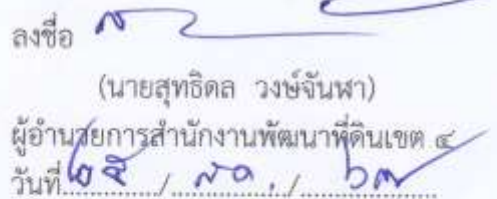 ลงชื่อ
(นายสุทธิดล วงษ์จันฬา)
ผู้อำนวยการสำนักงานพัฒนาที่ดินเขต ๔
วันที่ ๒๕ / ส.ค. / ๖๗